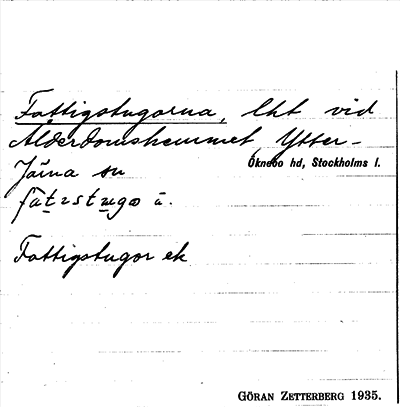 Fattigstugorna, lht vid
Ålderdomshemmet, Ytter-
Järna sn
Öknebo hd, Stockholms l.
Fattigstugor ek
GÖRAN ZETTERBERG 1935.